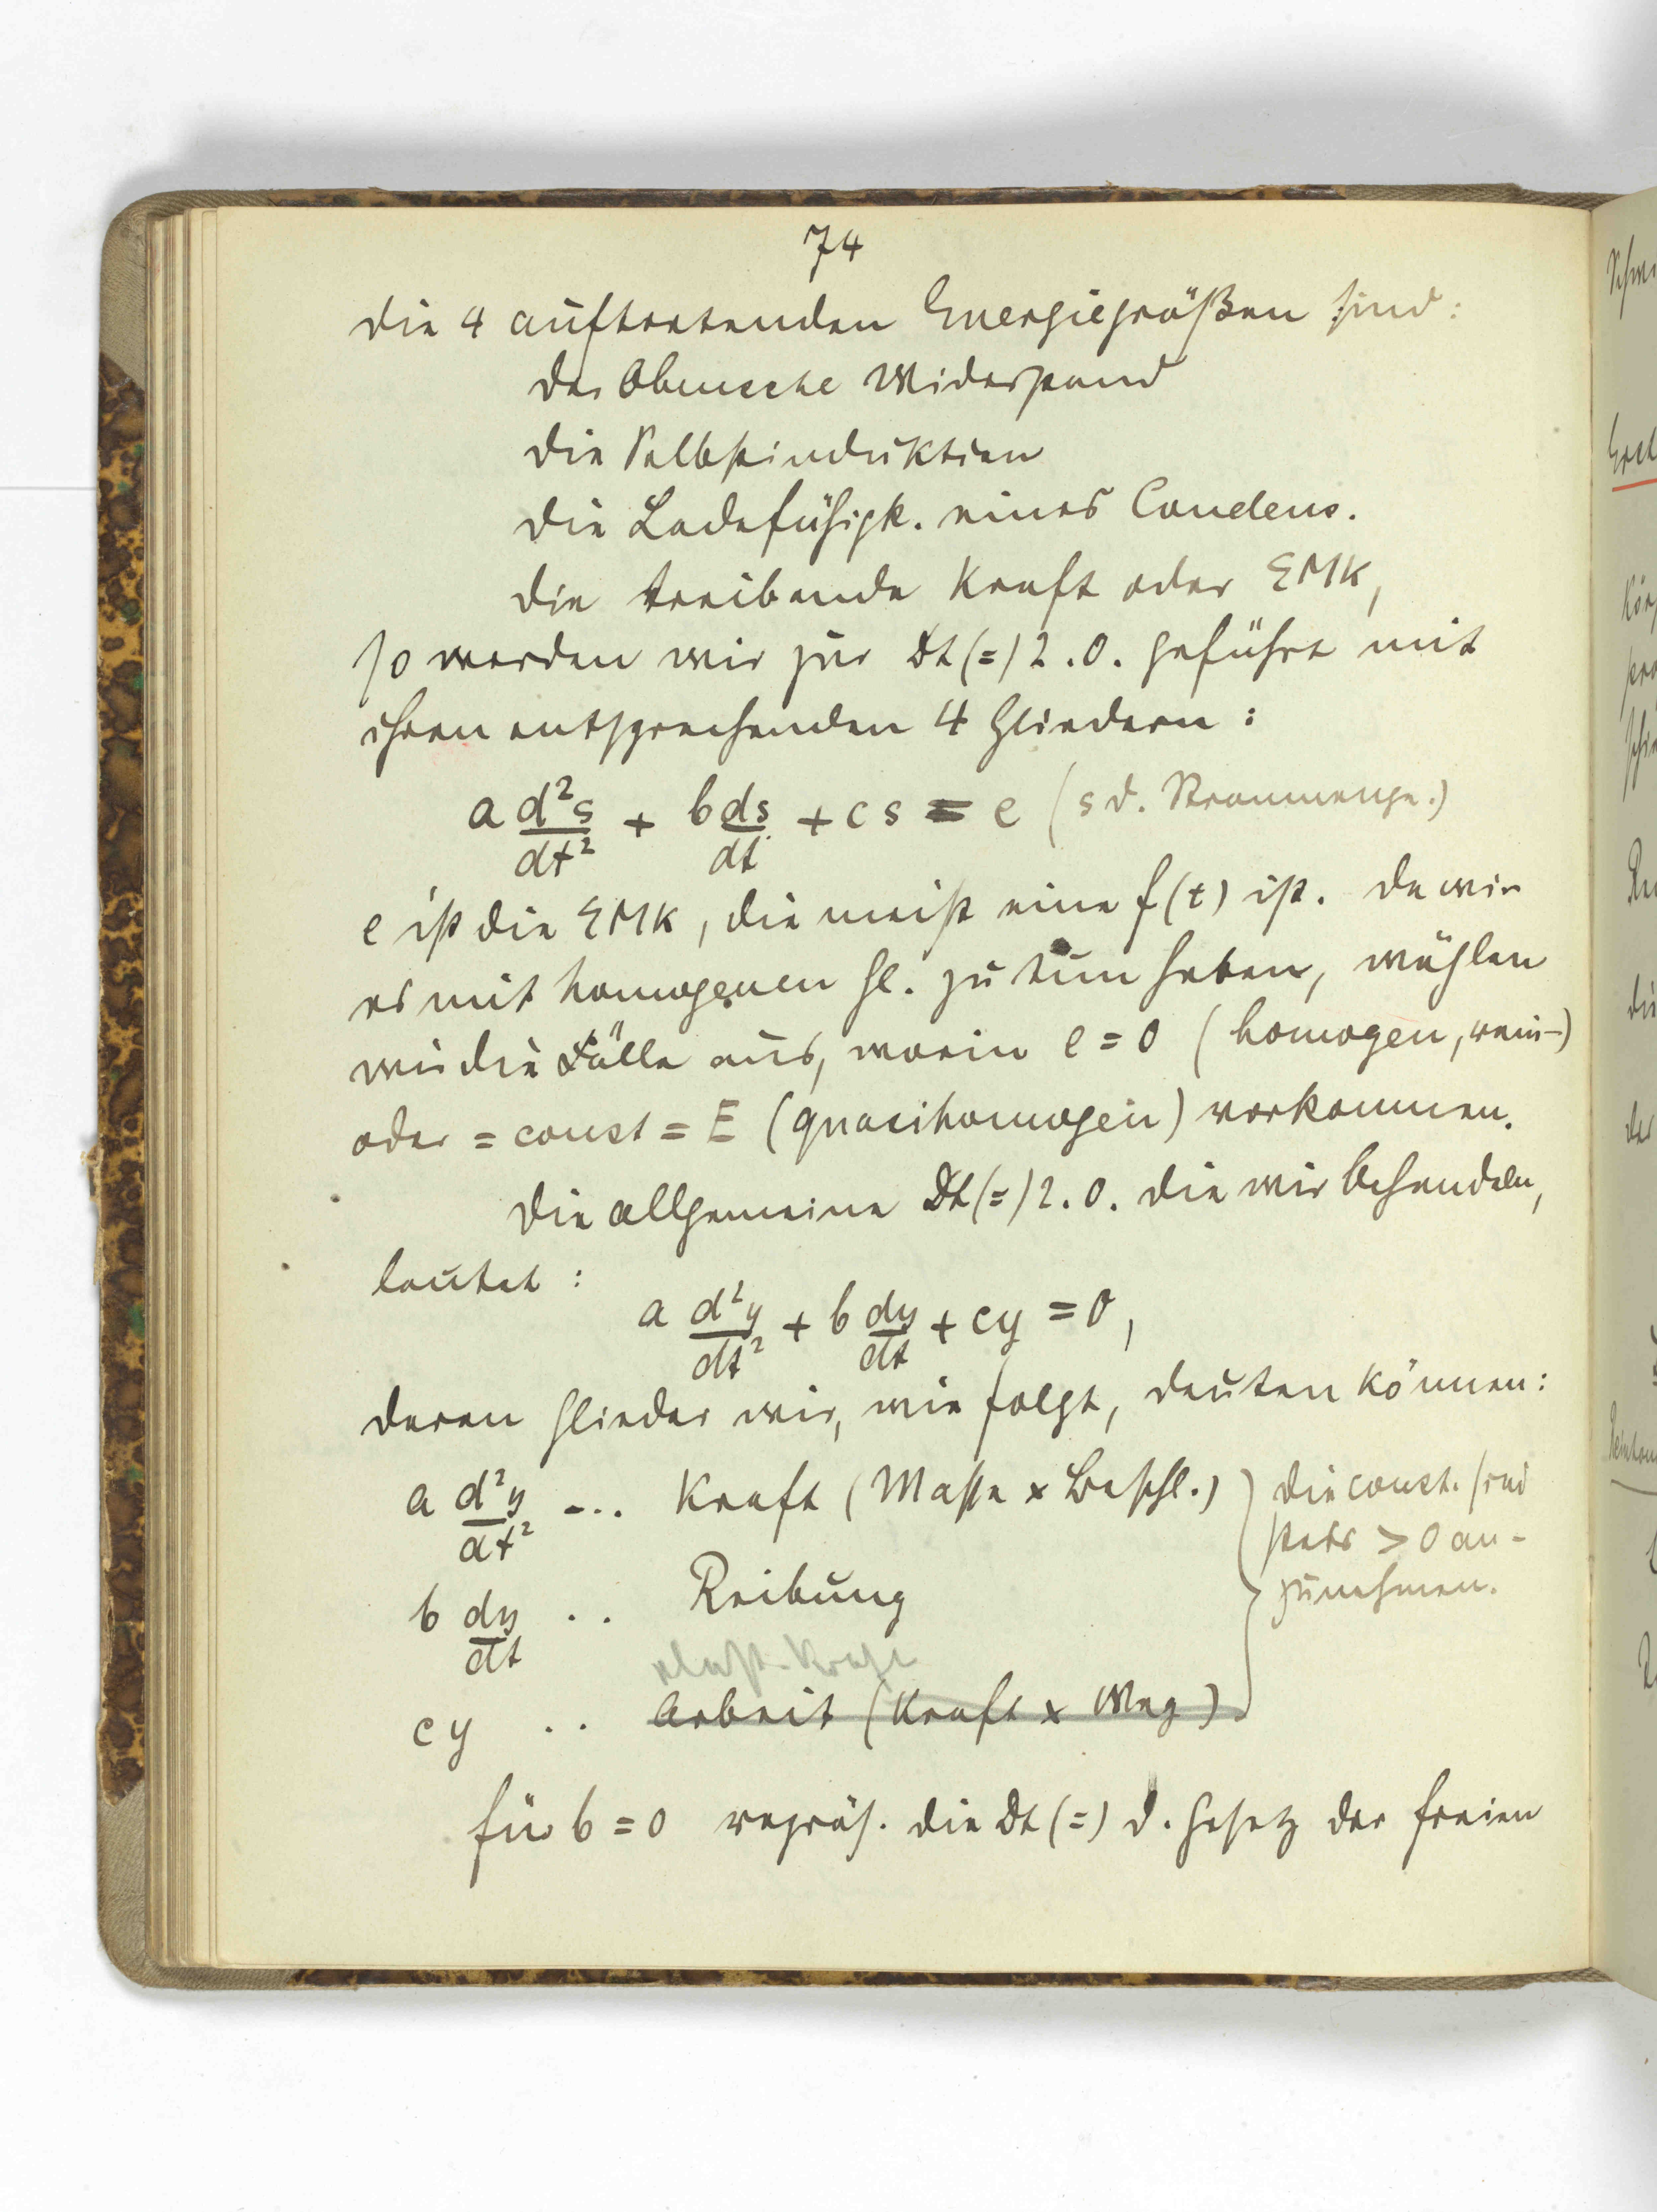 74
die 4 auftretenden Energiegrößen sind:
der Ohmsche Widerstand
die Selbstinduktion
die Ladefähigk. eines Condens.
die treibende Kraft oder EMK,
so werden wir zur Dt(=) 2.O. geführt mit
ihren entsprechenden 4 Gliedern:
a d²s/dt² + b ds/dt + cs = e (s d. Strommenge.)
e ist die EMK, die meist eine f(t) ist. Da wir
es mit homogenen Gl. zu tun haben, wählen
wir die Fälle aus, worin e = 0 (homogen, rein–)
oder = const = E (quasihomogen) vorkommen.
Die allgemeine Dt(=) 2.O. die wir behandeln,
lautet:
a d²y/dt² + b dy/dt + cy = 0,
deren Glieder wir, wie folgt, deuten können:
a d²y/dt² ... Kraft (Masse x Beschl.) die const. sind
stets > 0 an-
zunehmen.
b dy/dt .. Reibung
elast. Kraft
cy .. Arbeit (Kraft x Weg)
für b = 0 repräs. die Dt(=) d. Gesetz der freien